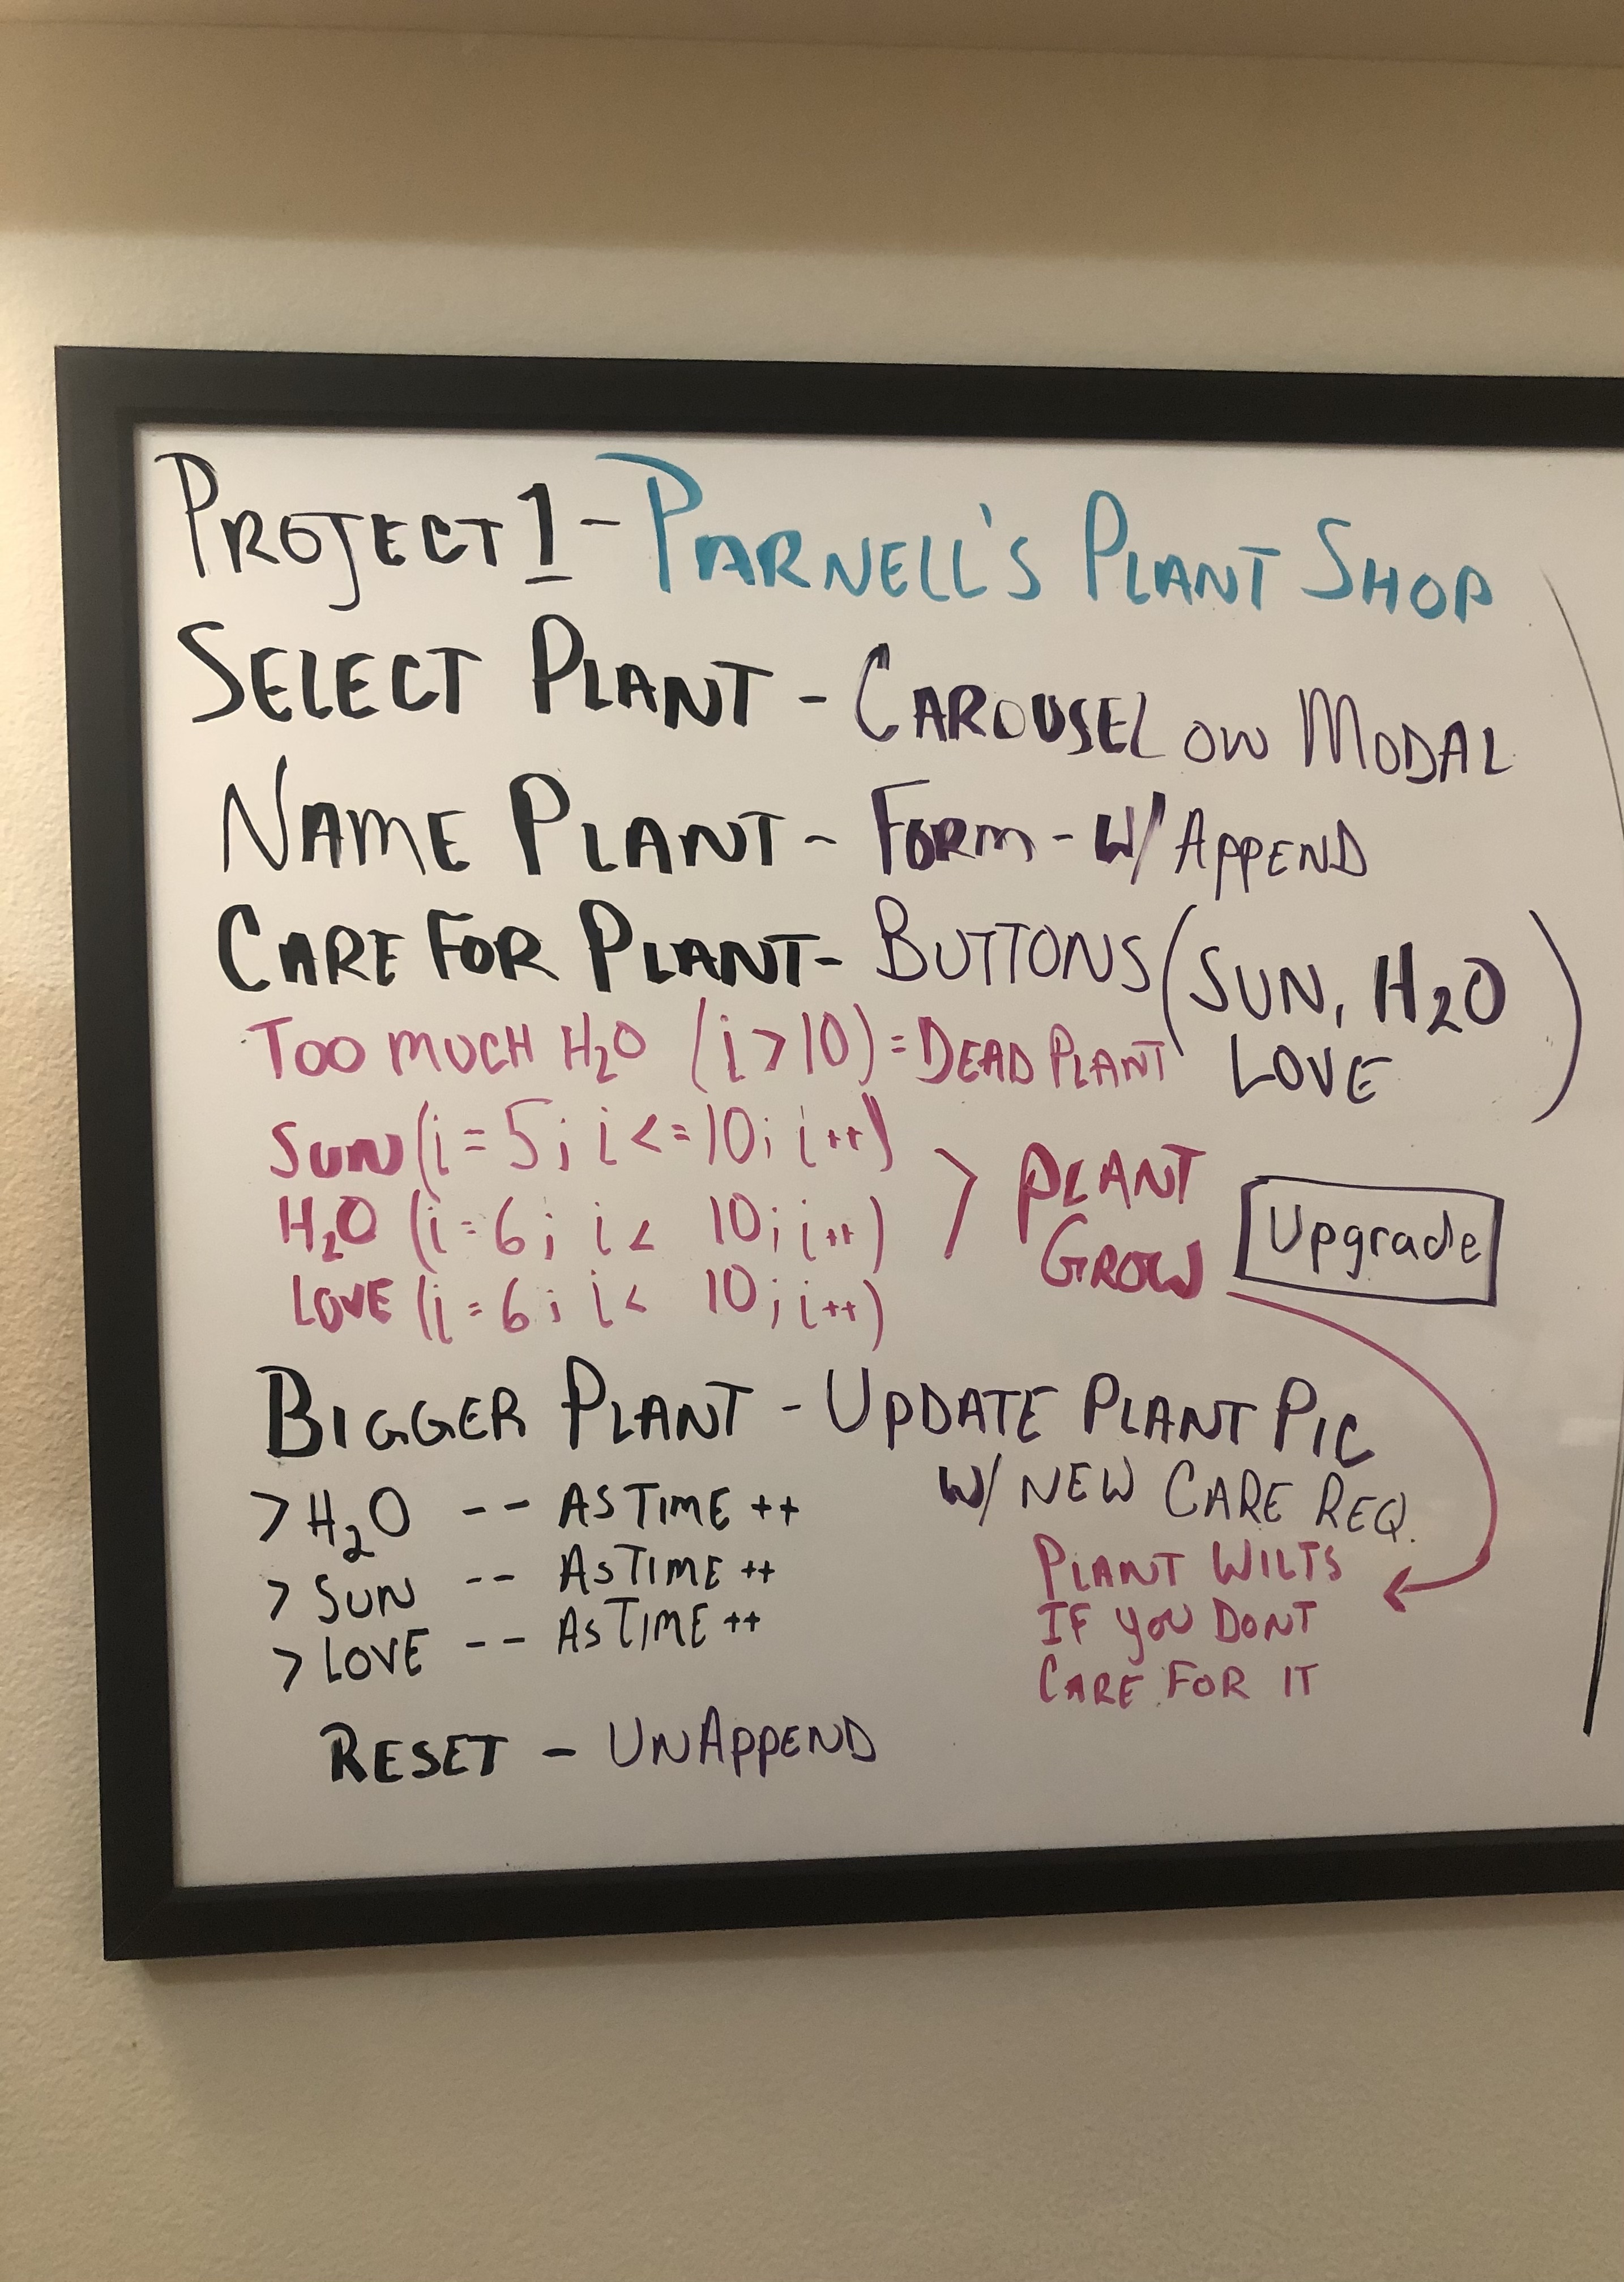 PROJECT 1 - PARNELL'S PLANT SHOP
SELECT PLANT - CAROUSEL ON MODAL
NAME PLANT - FORM - W/ APPEND
CARE FOR PLANT - BUTTONS (SUN, H2O
LOVE)
TOO MUCH H2O (i > 10) = DEAD PLANT
SUN (i = 5; i <= 10; i++)
H2O (i = 6; i < 10; i++)
LOVE (i = 6; i < 10; i++)
> PLANT
GROW
Upgrade
BIGGER PLANT - UPDATE PLANT PIC
W/ NEW CARE REQ.
> H2O -- AS TIME ++
> SUN -- AS TIME ++
> LOVE -- AS TIME ++
PLANT WILTS
IF YOU DONT
CARE FOR IT
RESET - UNAPPEND